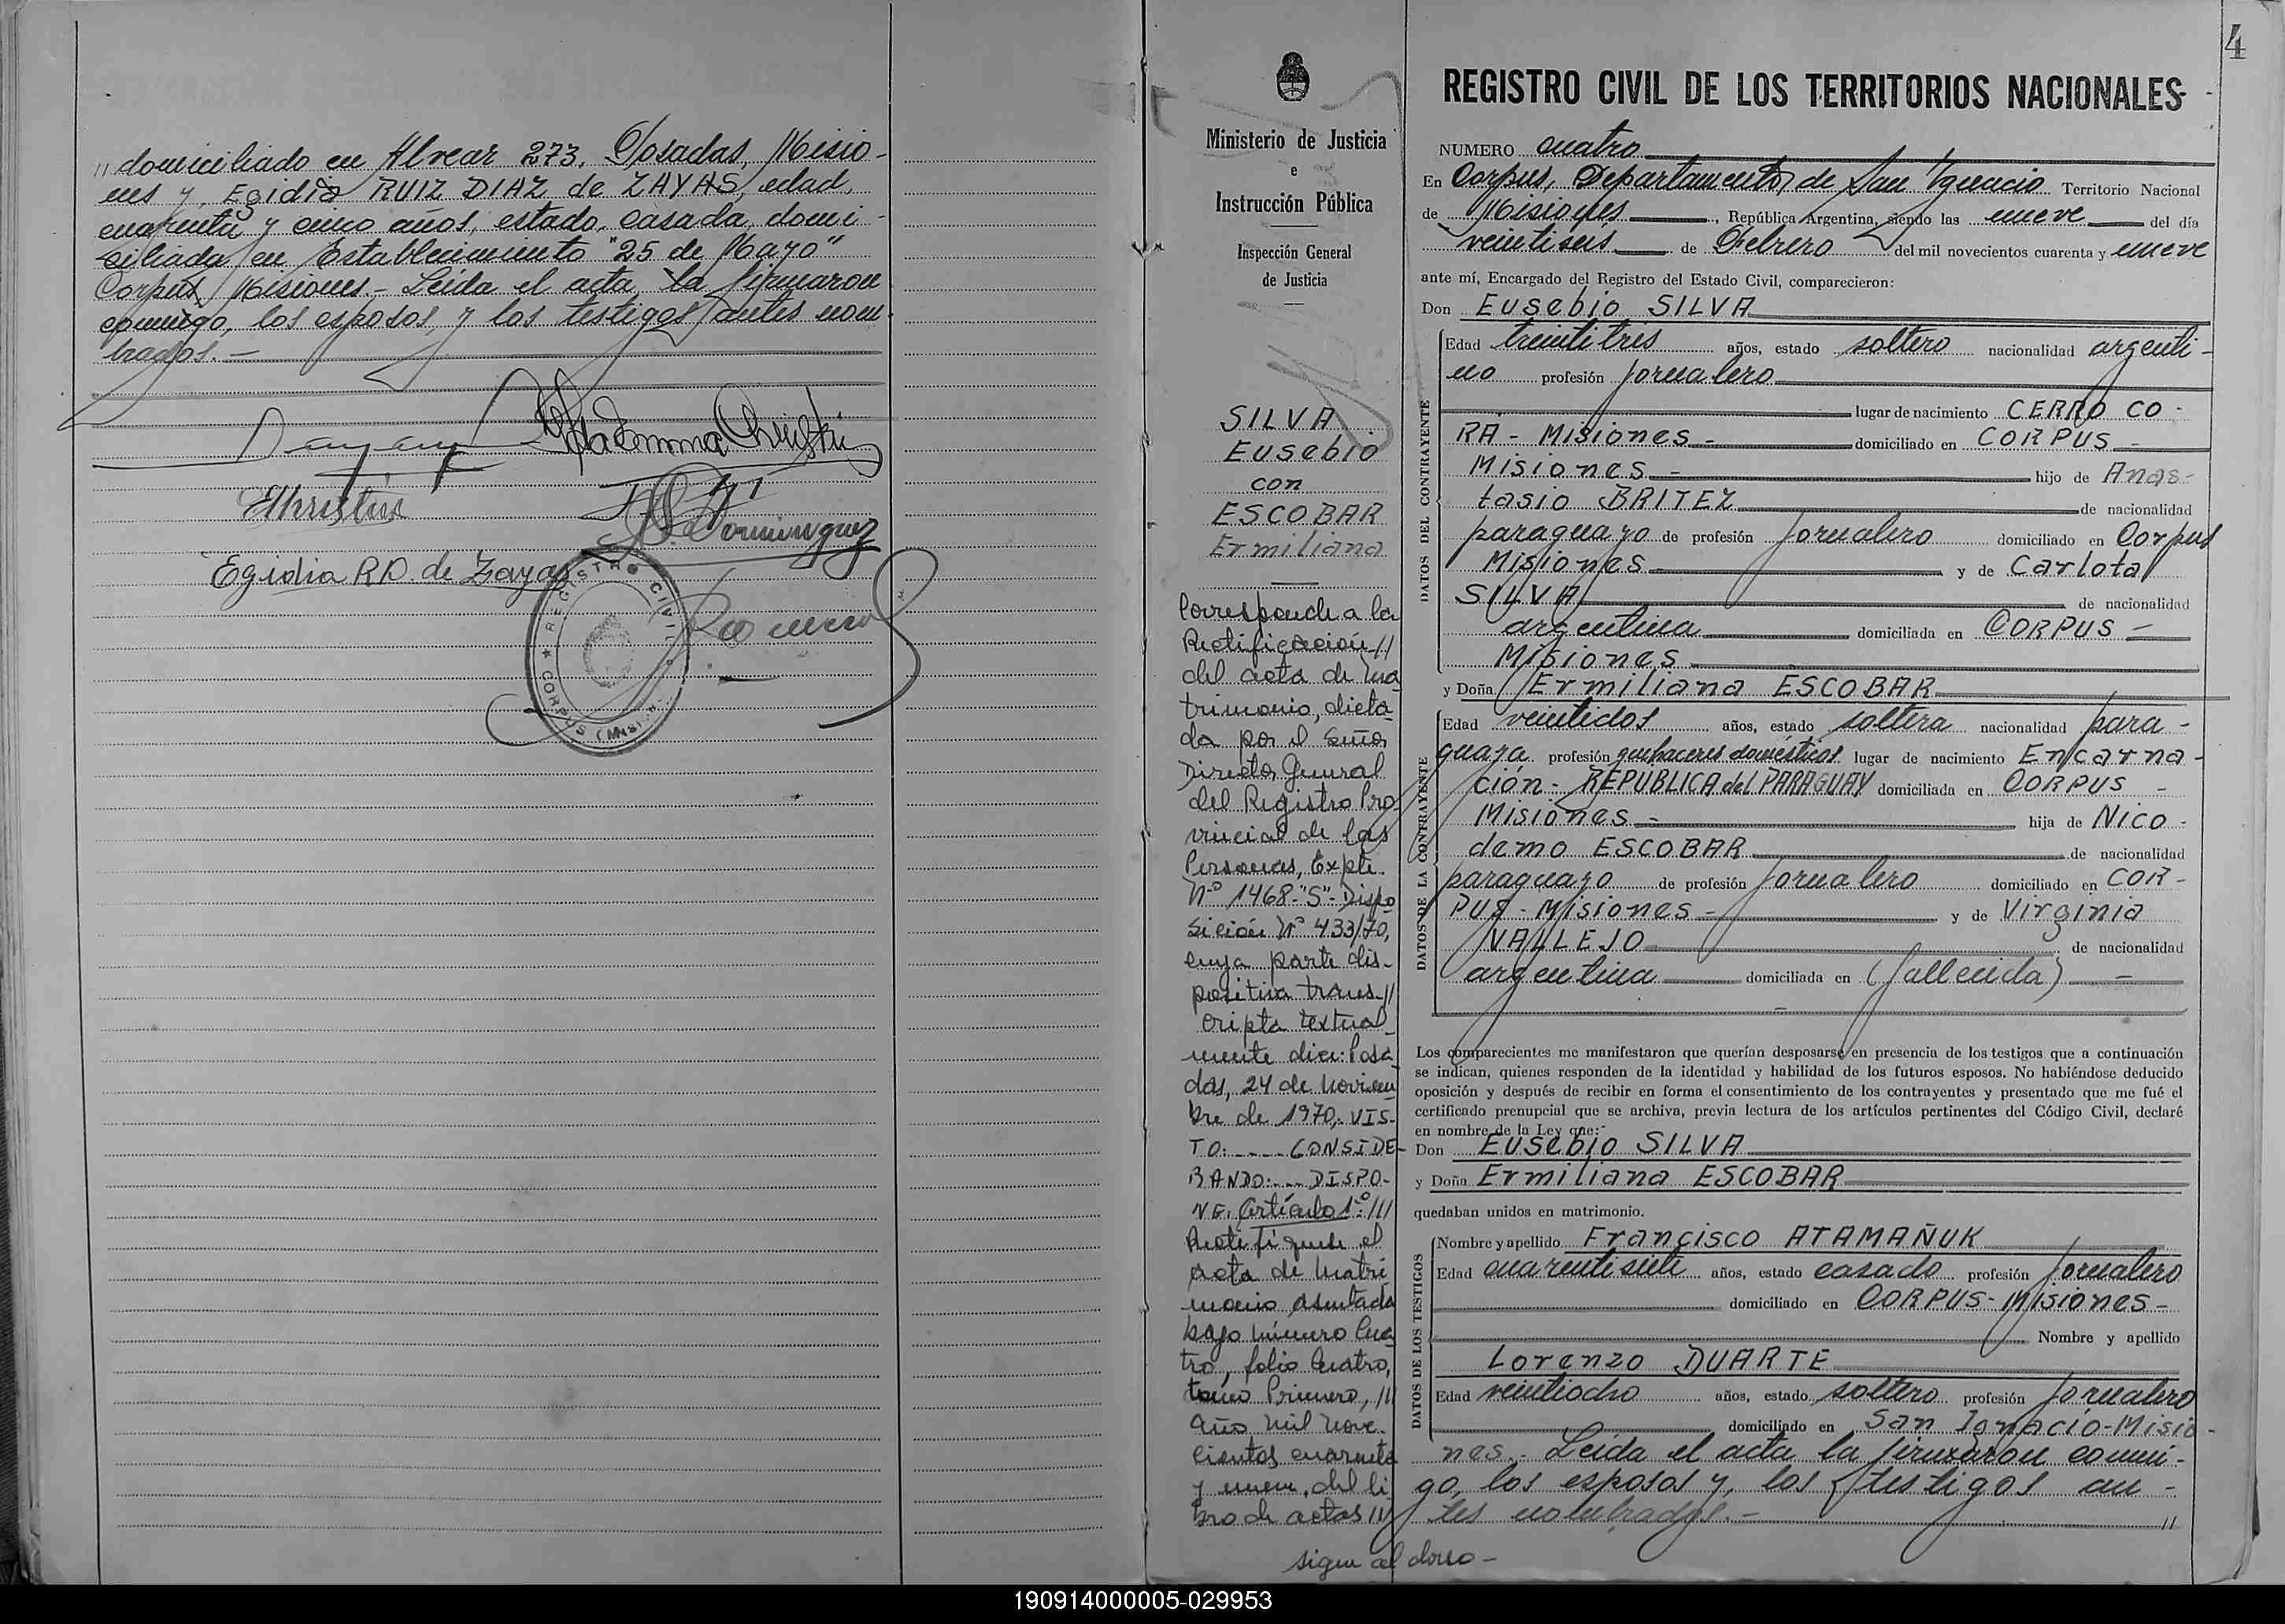 " domiciliado en Alvear 273, Posadas, Misio-
nes y, Egidia RUIZ DIAZ de ZAYAS, edad,
cuarenta y cinco años, estado, casada, domi-
ciliada en Establecimiento "25 de Mayo"
Corpus, Misiones.- Leída el acta, la firmaron
conmigo, los esposos, y los testigos antes nom-
brados.-
Egidia R D. de Zayas
REGISTRO CIVIL
CORPUS (MISIONES)
Ministerio de Justicia
e
Instrucción Pública
Inspección General
de Justicia
SILVA
Eusebio
con
ESCOBAR
Ermiliana
Corresponde a la
Rectificación //
del acta de Ma
trimonio, dicta-
da por el Señor
Director General
del Registro Pro
vincial de las
Personas, Expte.
Nº 1468-"S"- Dispo
sición Nº 433/70,
cuya parte dis-
positiva trans-//
cripta textual
mente dice: Posa
das, 24 de Noviem
bre de 1970,- VIS-
TO: ---- CONSIDE-
RANDO: --- DISPO-
NE: Artículo 1º: ///
Rectifíquese el
acta de Matri
monio asentada
bajo número Cua
tro, folio Cuatro,
tomo Primero, ///
año mil nove-
cientos cuarenta
y nueve, del li
bro de actas ///
sigue al dorso -
4
REGISTRO CIVIL DE LOS TERRITORIOS NACIONALES
NUMERO cuatro
En Corpus, Departamento de San Ignacio Territorio Nacional
de Misiones, República Argentina, siendo las nueve del día
veintiseis de Febrero del mil novecientos cuarenta y nueve
ante mí, Encargado del Registro del Estado Civil, comparecieron:
Don Eusebio SILVA
DATOS DEL CONTRAYENTE
Edad treintitrés años, estado soltero nacionalidad argenti-
no profesión jornalero
lugar de nacimiento CERRO CO-
RÁ - Misiones - domiciliado en CORPUS -
Misiones - hijo de Anas-
tasio BRITEZ de nacionalidad
paraguayo de profesión jornalero domiciliado en Corpus
Misiones y de Carlota
SILVA de nacionalidad
argentina domiciliada en CORPUS -
Misiones
y Doña Ermiliana ESCOBAR
DATOS DE LA CONTRAYENTE
Edad veintidos años, estado soltera nacionalidad para-
guaya profesión quehaceres domésticos lugar de nacimiento Encarna-
ción - REPUBLICA del PARAGUAY domiciliada en CORPUS -
Misiones - hija de Nico-
demo ESCOBAR de nacionalidad
paraguayo de profesión jornalero domiciliado en COR-
PUS - Misiones - y de Virginia
VALLEJO de nacionalidad
argentina domiciliada en (fallecida) -
Los comparecientes me manifestaron que querían desposarse en presencia de los testigos que a continuación
se indican, quienes responden de la identidad y habilidad de los futuros esposos. No habiéndose deducido
oposición y después de recibir en forma el consentimiento de los contrayentes y presentado que me fué el
certificado prenupcial que se archiva, previa lectura de los artículos pertinentes del Código Civil, declaré
en nombre de la Ley que:
Don Eusebio SILVA
y Doña Ermiliana ESCOBAR
quedaban unidos en matrimonio.
DATOS DE LOS TESTIGOS
Nombre y apellido Francisco ATAMAÑUK
Edad cuarentisiete años, estado casado profesión jornalero
domiciliado en CORPUS - Misiones -
Nombre y apellido
Lorenzo DUARTE
Edad veintiocho años, estado soltero profesión jornalero
domiciliado en San Ignacio - Misio-
nes.- Leída el acta la firmaron conmi-
go, los esposos y, los testigos an-
tes nombrados.- //
190914000005-029953